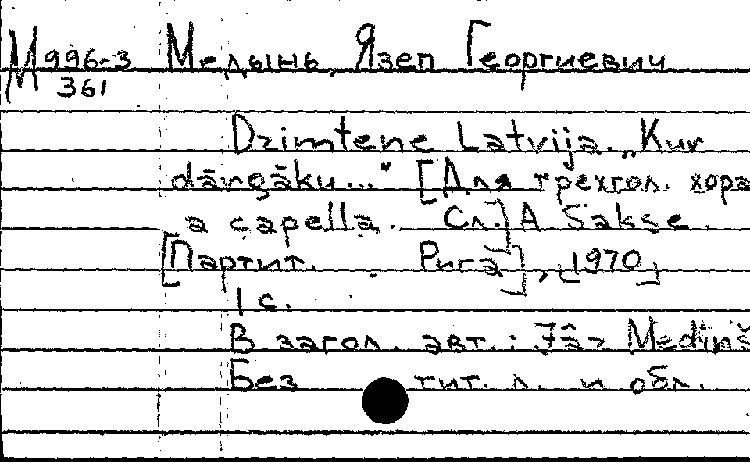 М 996-3 Медынь, Язеп Георгиевич
361
Dzimtene Latvija. „Kur
dārgāku..." [Для трехгол. хора
a capella. Сл.] A Sakse.
[Партит. Рига], [1970]
1 с.
В загол. авт.: Mediņš
Без тит. л. и обл.